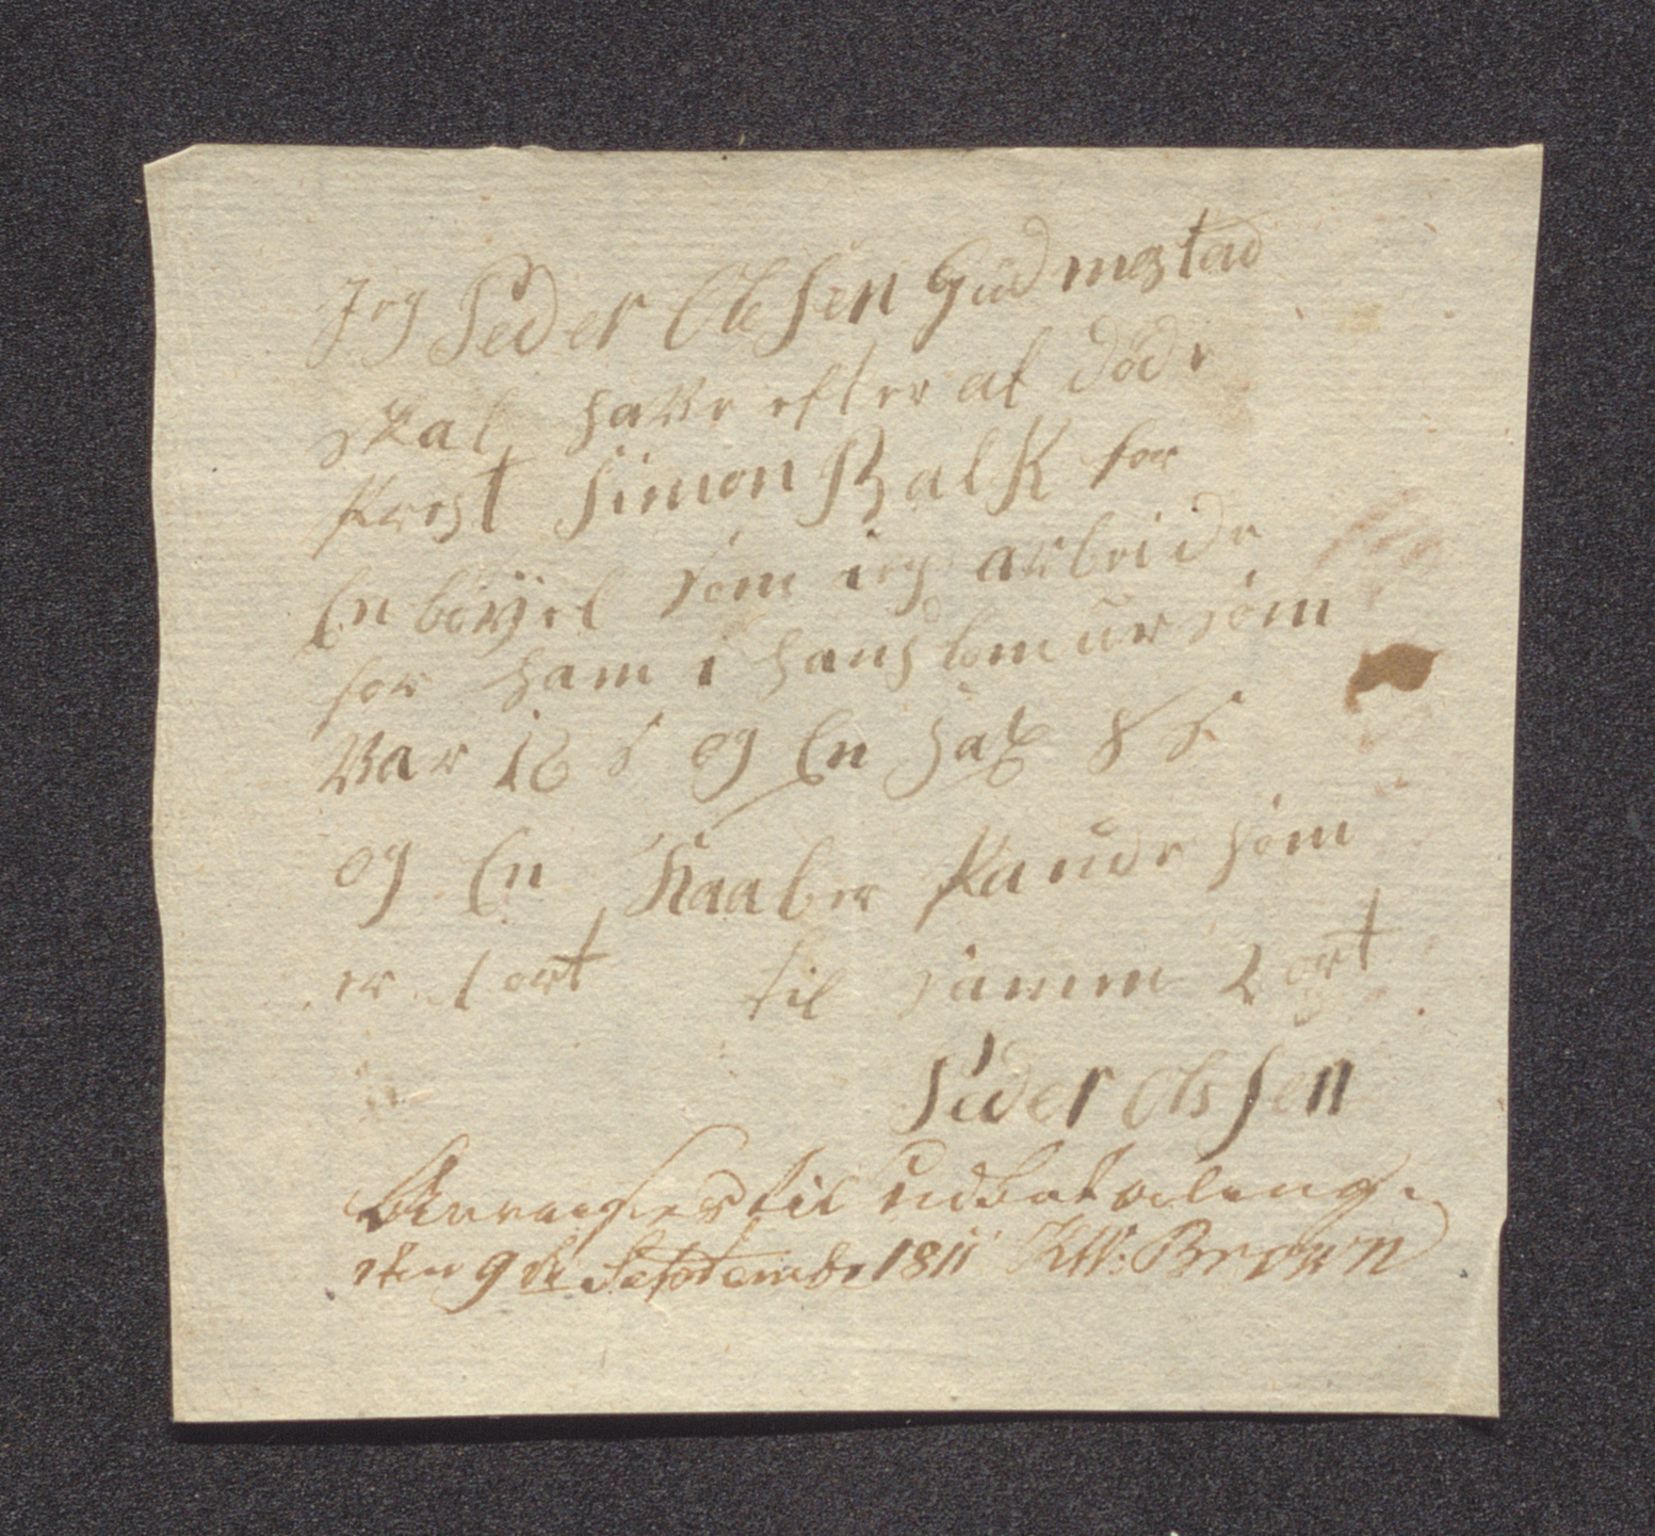 Jeg Peder Olessen Gudmestad
skal have efter al döde
Prest Simon Balk for
En böyel som ieg arbeide
for ham i hans lomur som
Var 16 s og En hat 8 s
og En Kaaber Pande som
er 1 ort til samme 2 ort
Peder Olssen
Anvises til Udbetaling.
den 9de Septembr 1811 KW: Brown